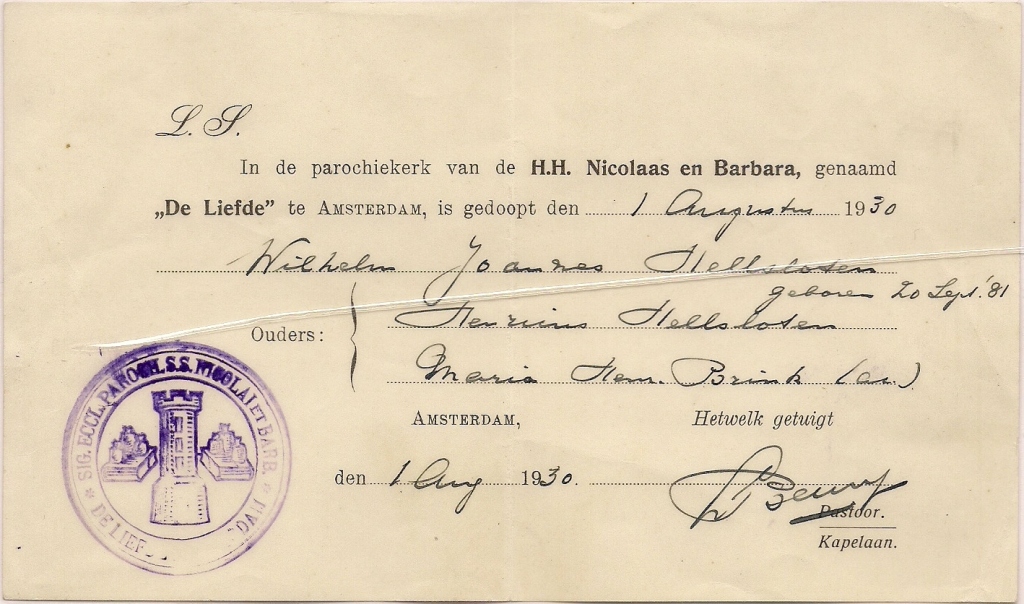 L. S.
In de parochiekerk van de H.H. Nicolaas en Barbara, genaamd
„De Liefde” te Amsterdam, is gedoopt den 1 Augustus 1930
Wilhelm Joannes Hellsloten
geboren 20 Sept. '81
Ouders:
Henricus Hellsloten
Maria Henr. Brink (a.c.)
Amsterdam,
Hetwelk getuigt
den 1 Aug 1930.
Pastoor.
Kapelaan.
SIG. ECCL. PAROCH. S.S. NICOLAI ET BARB.
DE LIEF